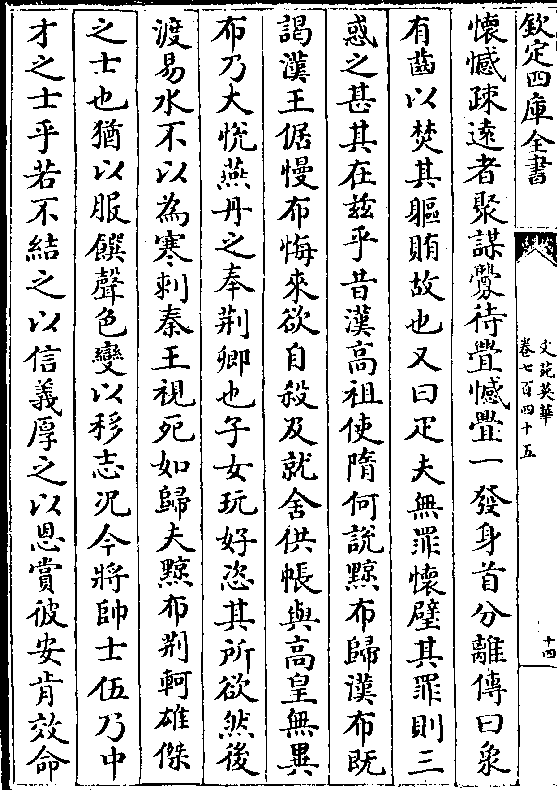 欽定四庫全書
文苑英華
卷七百四十五
十四
懷憾疎逺者聚謀釁待舋憾舋一發身首分離傳曰象
有齒以焚其軀賄故也又曰疋夫無罪懷璧其罪則三
惑之甚其在兹乎昔漢高祖使隋何説黥布歸漢布既
謁漢王倨慢布悔來欲自殺及就舍供帳與高皇無異
布乃大悅燕丹之奉荆卿也子女玩好恣其所欲然後
渡易水不以為寒刺秦王視死如歸夫黥布荆軻雄傑
之士也猶以服饌聲色變以移志況今將帥士伍乃中
才之士乎若不結之以信義厚之以恩賞彼安肯效命